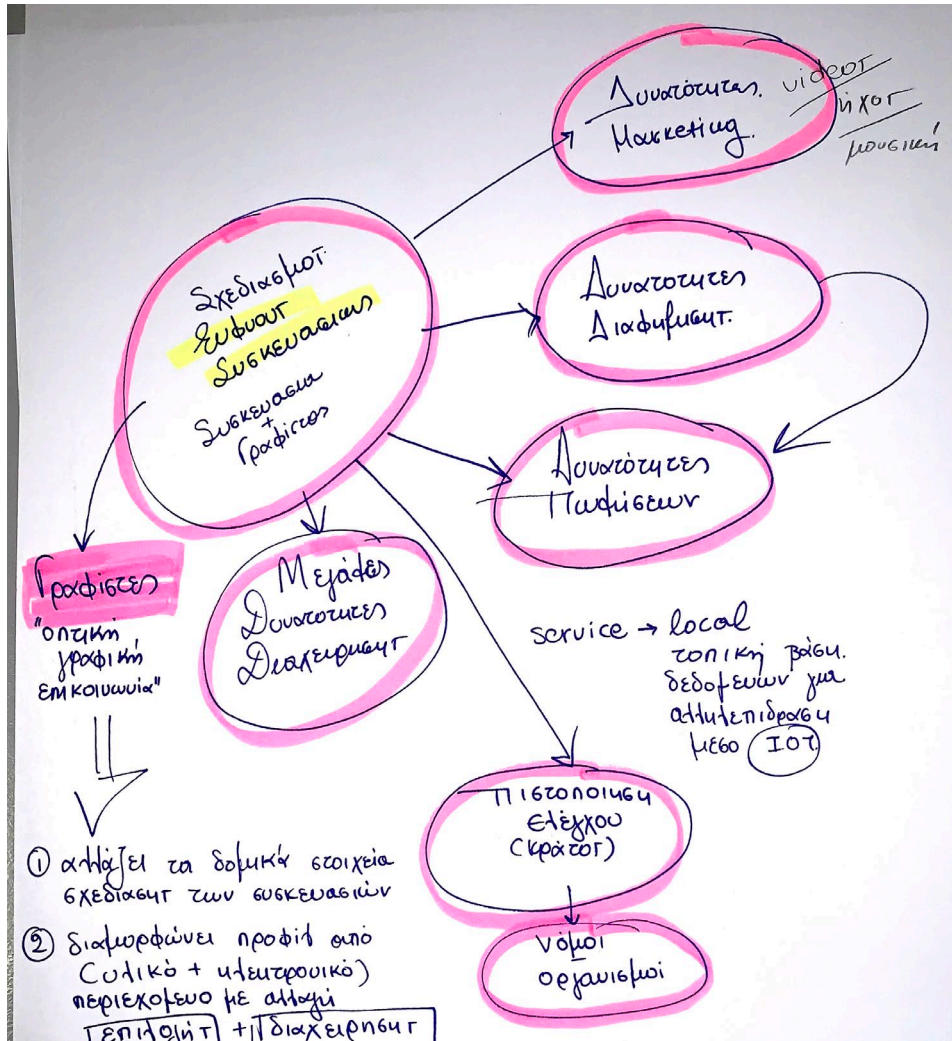 Δυνατότητες
Marketing.
video
ήχος
μουσική
Σχεδιασμός
Ευφυούς
Συσκευασίας
Συσκευασία
+
Γραφίστας
Δυνατότητες
Διαφήμισης.
Δυνατότητες
Πωλήσεων
Γραφίστες
"οπτική
γραφική
επικοινωνία"
Μεγάλες
Δυνατότητες
Διαχείρισης
service → local
τοπική βάση.
δεδομένων για
αλληλεπίδραση
μέσο ΙΟΤ.
Πιστοποιηση
Ελέγχου
(κράτος)
Νόμοι
οργανισμοί
① αλλάζει τα δομικά στοιχεία
σχεδίασης των συσκευασιών
② διαμορφώνει προφίλ από
(υλικό + ηλεκτρονικό)
περιεχόμενο με αλλαγή
επιλογής + διαχείρησης